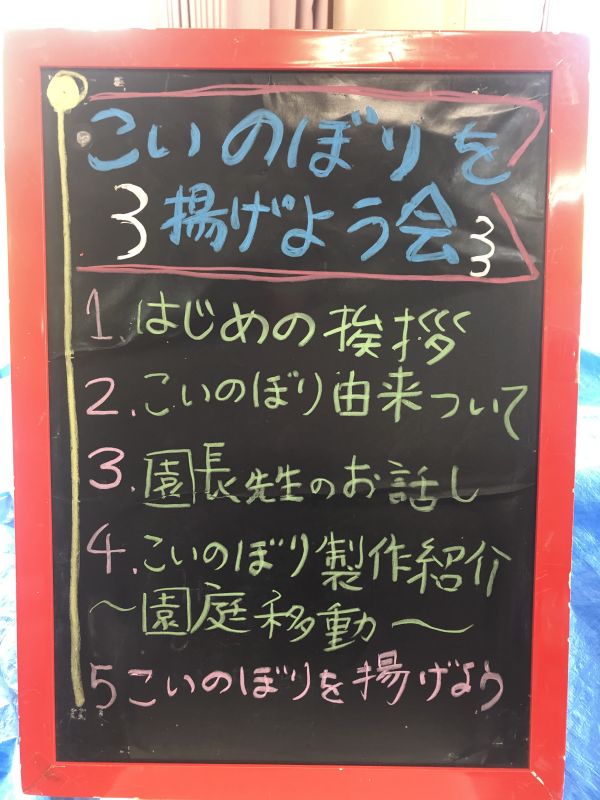 こいのぼりを
揚げよう会
1 はじめの挨拶
2.こいのぼり由来ついて
3.園長先生のお話し
4.こいのぼり製作紹介
～園庭移動～
5こいのぼりを揚げよう